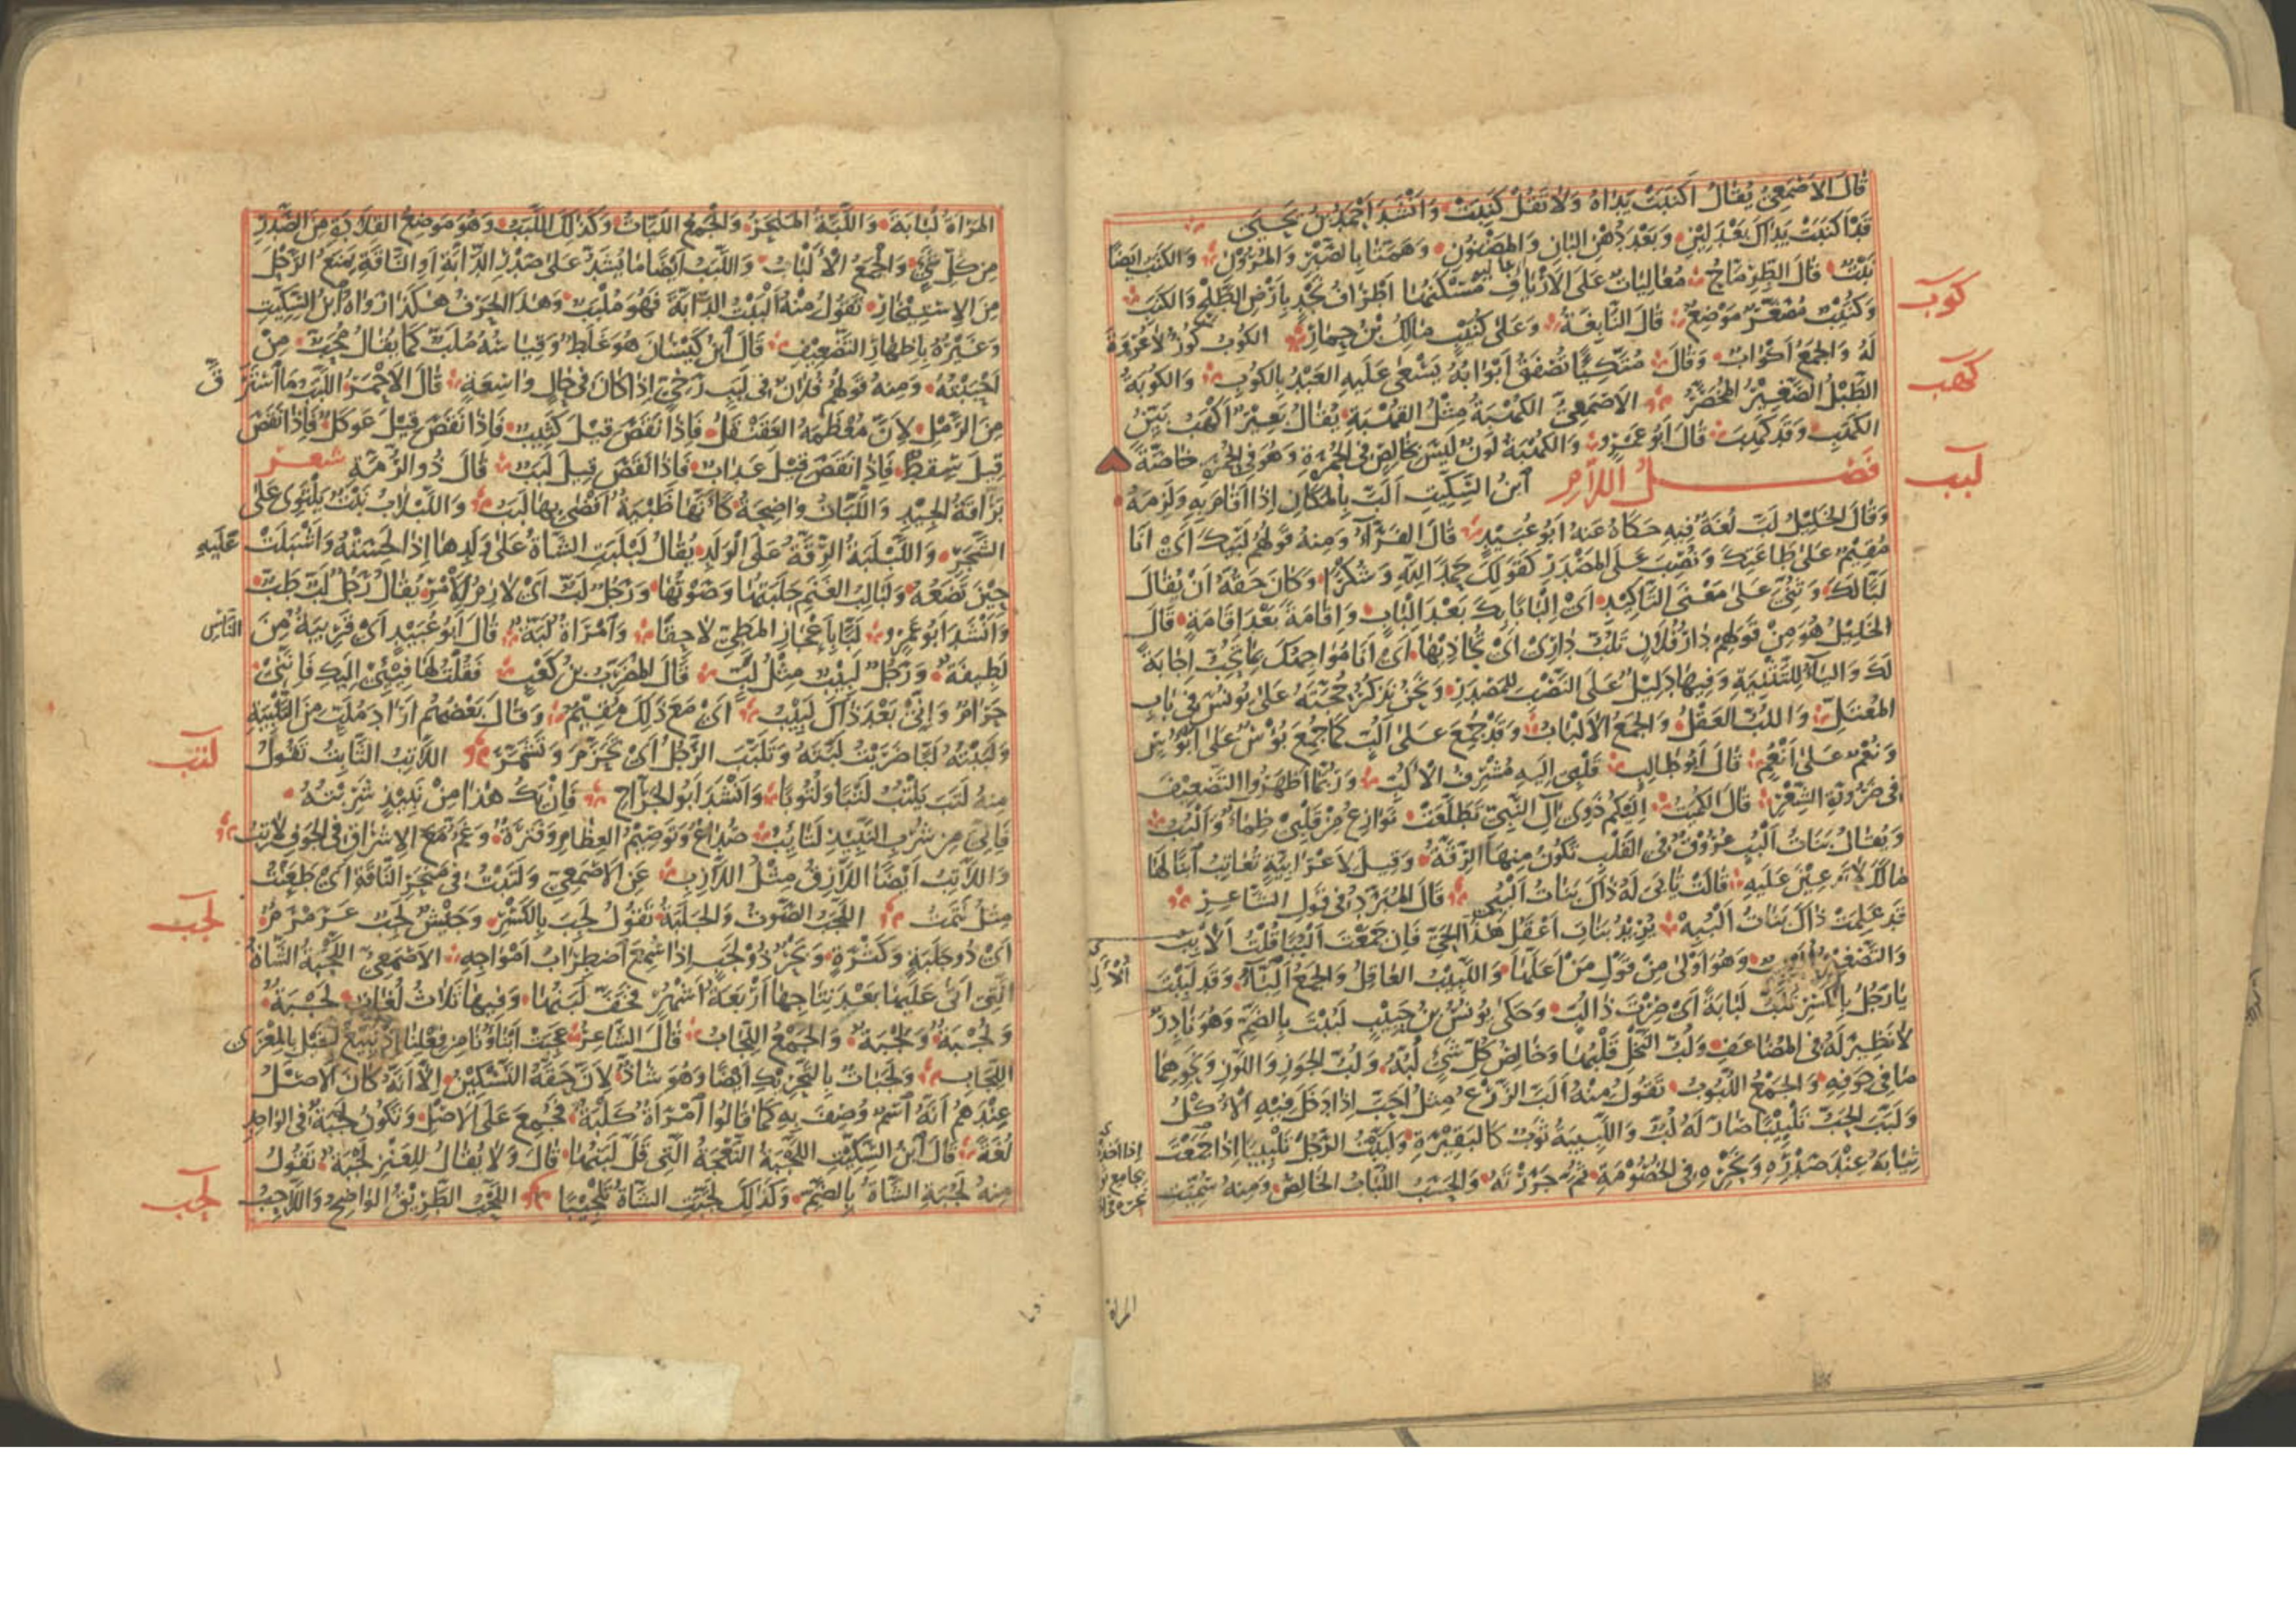 قَالَ الأَصْمَعِيُّ يُقَالُ أَكْنَبَتْ يَدَاهُ وَلَا تَقُلْ كَنِبَتْ وَأَنْشَدَ أَحْمَدُ بْنُ يَحْيَى
قَدْ أَكْنَبَتْ يَدَاكَ بَعْدَ لِينِ وَبَعْدَ دُهْنِ الْبَانِ وَالْمَضْنُونِ وَهَمَّتَا بِالصَّبْرِ وَالْمُرُونِ وَالْكَنِبُ أَيْضًا
نَبْتٌ قَالَ الطِّرِمَّاحُ مُعَالِيَاتٌ عَلَى الأَرْيَافِ مَسْكَنُهَا أَطْرَافُ نَجْدٍ بِأَرْضِ الطَّلْحِ وَالْكَنِبِ
كوب
وَكُنَيْبٌ مُصَغَّرٌ مَوْضِعٌ قَالَ النَّابِغَةُ وَعَلَى كُنَيْبٍ مَالِكُ بْنُ حِمَارِ الْكُوبُ كُوزٌ لَا عُرْوَةَ
لَهُ وَالْجَمْعُ أَكْوَابٌ وَقَالَ مُتَّكِئًا تُصْفَقُ أَبْوَابُهُ يَسْعَى عَلَيْهِ الْعَبْدُ بِالْكُوبِ وَالْكُوبَةُ
كهب
الطَّبْلُ الصَّغِيرُ الْمُخَصَّرُ الأَصْمَعِيُّ الْكُهْبَةُ مِثْلُ الْقُهْبَةِ يُقَالُ بَعِيرٌ أَكْهَبُ بَيِّنُ
الْكَهَبِ وَقَدْ كَهِبَ قَالَ أَبُو عَمْرٍو وَالْكُهْبَةُ لَوْنٌ لَيْسَ بِخَالِصٍ فِي الْحُمْرَةِ وَهُوَ فِي الْحُمْرِ خَاصَّةً
لبب
فصل اللام ابْنُ السِّكِّيتِ أَلَبَّ بِالْمَكَانِ إِذَا أَقَامَ بِهِ وَلَزِمَهُ
وَقَالَ الْخَلِيلُ لَبَّ لُغَةٌ فِيهِ حَكَاهُ عَنْهُ أَبُو عُبَيْدٍ قَالَ الْفَرَّاءُ وَمِنْهُ قَوْلُهُمْ لَبَّيْكَ أَيْ أَنَا
مُقِيمٌ عَلَى طَاعَتِكَ وَنُصِبَ عَلَى الْمَصْدَرِ كَقَوْلِكَ حَمْدًا لِلَّهِ وَشُكْرًا وَكَانَ حَقُّهُ أَنْ يُقَالَ
لَبًّا لَكَ وَثُنِّيَ عَلَى مَعْنَى التَّأْكِيدِ أَيْ إِلْبَابًا بِكَ بَعْدَ إِلْبَابٍ وَإِقَامَةً بَعْدَ إِقَامَةٍ قَالَ
الْخَلِيلُ هُوَ مِنْ قَوْلِهِمْ دَارُ فُلَانٍ تَلُبُّ دَارِي أَيْ تُحَاذِيهَا أَيْ أَنَا مُوَاجِهُكَ بِمَا تُحِبُّ إِجَابَةً
لَكَ وَالْيَاءُ لِلتَّثْنِيَةِ وَفِيهَا دَلِيلٌ عَلَى النَّصْبِ لِلْمَصْدَرِ وَنَحْنُ نَذْكُرُ حُجَّتَهُ عَلَى يُونُسَ فِي بَابِ
الْمُعْتَلِّ وَاللُّبُّ الْعَقْلُ وَالْجَمْعُ الأَلْبَابُ وَقَدْ جُمِعَ عَلَى أَلُبٍّ كَمَا جُمِعَ بُؤْسٌ عَلَى أَبْؤُسٍ
وَنُعْمٌ عَلَى أَنْعُمٍ قَالَ أَبُو طَالِبٍ قَلْبِي إِلَيْهِ مُشْرِفُ الأَلُبِّ وَرُبَّمَا أَظْهَرُوا التَّضْعِيفَ
فِي ضَرُورَةِ الشِّعْرِ قَالَ الْكُمَيْتُ إِلَيْكُمْ ذَوِي آلِ النَّبِيِّ تَطَلَّعَتْ نَوَازِعُ مِنْ قَلْبِي ظِمَاءٌ وَأَلْبُبُ
وَيُقَالُ بَنَاتُ أَلْبُبٍ عُرُوقٌ فِي الْقَلْبِ تَكُونُ مِنْهَا الرِّقَّةُ وَقِيلَ لِأَعْرَابِيَّةٍ تُعَاتِبُ ابْنًا لَهَا
مَا لَكِ لَا تَدْعِينَ عَلَيْهِ قَالَتْ تَأْبَى لَهُ ذَاكَ بَنَاتُ أَلْبُبِي قَالَ الْمُبَرِّدُ فِي قَوْلِ الشَّاعِرِ
قَدْ عَلِمَتْ ذَاكَ بَنَاتُ أَلْبُبِهْ يُرِيدُ بَنَاتِ أَعْقَلِ هَذَا الْحَيِّ فَإِنْ جَمَعْتَ أَلْبُبًا قُلْتَ أَلَابِبُ
وَالتَّصْغِيرُ وَهُوَ أَوْلَى مِنْ قَوْلِ مَنْ أَعَلَّهَا وَاللَّبِيبُ الْعَاقِلُ وَالْجَمْعُ أَلِبَّاءُ وَقَدْ لَبِبْتَ
يَا رَجُلُ بِالْكَسْرِ تَلَبُّ لَبَابَةً أَيْ صِرْتَ ذَا لُبٍّ وَحَكَى يُونُسُ بْنُ حَبِيبٍ لَبُبْتَ بِالضَّمِّ وَهُوَ نَادِرٌ
لَا نَظِيرَ لَهُ فِي الْمُضَاعَفِ وَلُبُّ النَّخْلِ قَلْبُهَا وَخَالِصُ كُلِّ شَيْءٍ لُبُّهُ وَلُبُّ الْجَوْزِ وَاللَّوْزِ وَنَحْوِهِمَا
مَا فِي جَوْفِهِ وَالْجَمْعُ اللُّبُوبُ تَقُولُ مِنْهُ أَلَبَّ الزَّرْعُ مِثْلُ أَحَبَّ إِذَا دَخَلَ فِيهِ الأُكْلُ
وَلَبَّبَ الْحَبُّ تَلْبِيبًا صَارَ لَهُ لُبٌّ وَاللَّبِيبَةُ ثَوْبٌ كَالْبَقِيرَةِ وَلَبَّبْتُ الرَّجُلَ تَلْبِيبًا إِذَا جَمَعْتَ
ثِيَابَهُ عِنْدَ صَدْرِهِ وَنَحْرِهِ فِي الْخُصُومَةِ ثُمَّ جَرَرْتَهُ وَالْحَسَبُ اللُّبَابُ الْخَالِصُ وَمِنْهُ سُمِّيَتِ
المراة
الْمَرْأَةُ لُبَابَةَ وَاللَّبَّةُ الْمَنْحَرُ وَالْجَمْعُ اللَّبَّاتُ وَكَذَلِكَ اللَّبَبُ وَهُوَ مَوْضِعُ الْقِلَادَةِ مِنَ الصَّدْرِ
مِنْ كُلِّ شَيْءٍ وَالْجَمْعُ الأَلْبَابُ وَاللَّبَبُ أَيْضًا مَا يُشَدُّ عَلَى صَدْرِ الدَّابَّةِ أَوِ النَّاقَةِ يَمْنَعُ الرَّحْلَ
مِنَ الِاسْتِيخَارِ تَقُولُ مِنْهُ أَلْبَبْتُ الدَّابَّةَ فَهُوَ مُلْبَبٌ وَهَذَا الْحَرْفُ هَكَذَا رَوَاهُ ابْنُ السِّكِّيتِ
وَغَيْرُهُ بِإِظْهَارِ التَّضْعِيفِ قَالَ ابْنُ كَيْسَانَ هُوَ غَلَطٌ وَقِيَاسُهُ مُلَبٌّ كَمَا يُقَالُ مُحَبٌّ مِنْ
أَحْبَبْتُهُ وَمِنْهُ قَوْلُهُمْ فُلَانٌ فِي لَبَبٍ رَخِيٍّ إِذَا كَانَ فِي حَالٍ وَاسِعَةٍ قَالَ الأَحْمَرُ اللَّبَبُ مَا اسْتَرَقَّ
مِنَ الرَّمْلِ لِأَنَّ مُعْظَمَهُ الْعَقَنْقَلُ فَإِذَا نَقَصَ قِيلَ كَثِيبٌ فَإِذَا نَقَصَ قِيلَ عَوْكَلٌ فَإِذَا نَقَصَ
قِيلَ سِقْطٌ فَإِذَا نَقَصَ قِيلَ عَدَابٌ فَإِذَا نَقَصَ قِيلَ لَبَبٌ قَالَ ذُو الرُّمَّةِ شعر
بَرَّاقَةُ الْجِيدِ وَاللَّبَّاتُ وَاضِحَةٌ كَأَنَّهَا ظَبْيَةٌ أَفْضَى بِهَا لَبَبٌ وَاللَّبْلَابُ نَبْتٌ يَلْتَوِي عَلَى
الشَّجَرِ وَاللَّبْلَبَةُ الرِّقَّةُ عَلَى الْوَلَدِ يُقَالُ لَبْلَبَتِ الشَّاةُ عَلَى وَلَدِهَا إِذَا لَحِسَتْهُ وَأَشْبَلَتْ عَلَيْهِ
حِينَ تَضَعُهُ وَلَبَالِبُ الْغَنَمِ جَلَبَتُهَا وَصَوْتُهَا وَرَجُلٌ لَبٌّ أَيْ لَازِمٌ لِلأَمْرِ يُقَالُ رَجُلٌ لَبٌّ طَبٌّ
وَأَنْشَدَ أَبُو عَمْرٍو لَبًّا بِأَعْجَازِ الْمَطِيِّ لَاحِقَا وَامْرَأَةٌ لَبَّةٌ قَالَ أَبُو عُبَيْدٍ أَيْ قَرِيبَةٌ مِنَ النَّاسِ
لَطِيفَةٌ وَرَجُلٌ لَبِيبٌ مِثْلُ لَبٍّ قَالَ الْمُضَرَّبُ بْنُ كَعْبٍ فَقُلْتُ لَهَا فِيئِي إِلَيْكِ فَإِنَّنِي
حَرَامٌ وَإِنِّي بَعْدَ ذَاكِ لَبِيبُ أَيْ مَعَ ذَلِكَ مُقِيمٌ وَقَالَ بَعْضُهُمْ أَرَادَ مُلَبٍّ مِنَ التَّلْبِيَةِ
لتب
وَلَبَبْتُهُ لَبًّا ضَرَبْتُ لَبَّتَهُ وَتَلَبَّبَ الرَّجُلُ أَيْ تَحَزَّمَ وَتَشَمَّرَ اللَّاتِبُ الثَّابِتُ تَقُولُ
مِنْهُ لَتَبَ يَلْتُبُ لَتْبًا وَلُتُوبًا وَأَنْشَدَ أَبُو الْجَرَّاحِ فَإِنْ يَكُ هَذَا مِنْ نَبِيذٍ شَرِبْتُهُ
فَإِنِّيَ مِنْ شُرْبِ النَّبِيذِ لَتَائِبُ صُدَاعٌ وَتَوْصِيمُ الْعِظَامِ وَفَتْرَةٌ وَغَمٌّ مَعَ الإِشْرَاقِ فِي الْجَوْفِ لَاتِبُ
وَاللَّاتِبُ أَيْضًا اللَّازِقُ مِثْلُ اللَّازِبِ عَنِ الأَصْمَعِيِّ وَلَتَبْتُ فِي مَنْحَرِ النَّاقَةِ أَيْ طَعَنْتُ
لجب
مِثْلُ لَتَمْتُ اللَّجَبُ الصَّوْتُ وَالْجَلَبَةُ تَقُولُ لَجِبَ بِالْكَسْرِ وَجَيْشٌ لَجِبٌ عَرَمْرَمٌ
أَيْ ذُو جَلَبَةٍ وَكَثْرَةٍ وَبَحْرٌ ذُو لَجَبٍ إِذَا سُمِعَ اضْطِرَابُ أَمْوَاجِهِ الأَصْمَعِيُّ اللَّجْبَةُ الشَّاةُ
الَّتِي أَتَى عَلَيْهَا بَعْدَ نِتَاجِهَا أَرْبَعَةُ أَشْهُرٍ فَخَفَّ لَبَنُهَا وَفِيهَا ثَلَاثُ لُغَاتٍ لَجْبَةٌ
وَلُجْبَةٌ وَلِجْبَةٌ وَالْجَمْعُ اللِّجَابُ قَالَ الشَّاعِرُ عَجِبَتْ أَبْنَاؤُنَا مِنْ فِعْلِنَا إِذْ نَبِيعُ الْخَيْلَ بِالْمِعْزَى
اللِّجَابِ وَلَجَبَاتٌ بِالتَّحْرِيكِ أَيْضًا وَهُوَ شَاذٌّ لِأَنَّ حَقَّهُ التَّسْكِينُ إِلَّا أَنَّهُ كَانَ الأَصْلُ
عِنْدَهُمْ أَنَّهُ اسْمٌ وُصِفَ بِهِ كَمَا قَالُوا امْرَأَةٌ كَلْبَةٌ فَجُمِعَ عَلَى الأَصْلِ وَتَكُونُ لَجَبَةٌ فِي الْوَاحِدِ
لُغَةً قَالَ ابْنُ السِّكِّيتِ اللَّجْبَةُ النَّعْجَةُ الَّتِي قَلَّ لَبَنُهَا قَالَ وَلَا يُقَالُ لِلْعَنْزِ لَجْبَةٌ تَقُولُ
لحب
مِنْهُ لَجُبَتِ الشَّاةُ بِالضَّمِّ وَكَذَلِكَ لَجَّبَتِ الشَّاةُ تَلْجِيبًا اللَّحْبُ الطَّرِيقُ الْوَاضِحُ وَاللَّاحِبُ